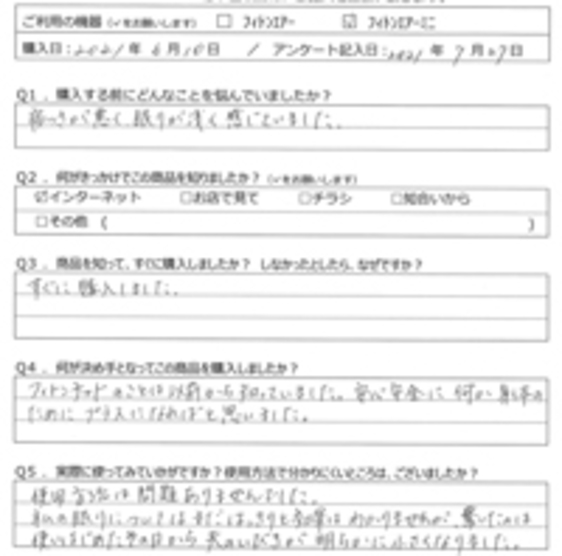 ご利用の機器（✓をお願いします） ☐ フィトンエアー ☑ フィトンエアーミニ
購入日：2021年6月10日 / アンケート記入日：2021年7月27日
Q1．購入する前にどんなことを悩んでいましたか？
寝つきが悪く眠りが浅く感じていました。
Q2．何がきっかけでこの商品を知りましたか？（✓をお願いします）
☑インターネット ☐お店で見て ☐チラシ ☐知合いから
☐その他（ ）
Q3．商品を知って、すぐに購入しましたか？ しなかったとしたら、なぜですか？
すぐに購入しました。
Q4．何が決め手となってこの商品を購入しましたか？
フィトンチッドのことは以前から知っていました。安心安全に何か身体の
ためにプラスになればと思いました。
Q5．実際に使ってみていかがですか？使用方法で分かりにくいところは、ございましたか？
使用方法は問題ありませんでした。
私の眠りについてはまだはっきりと効果はわかりませんが、驚いたのは
使いはじめたその日から夫のいびきが明らかに小さくなりました。